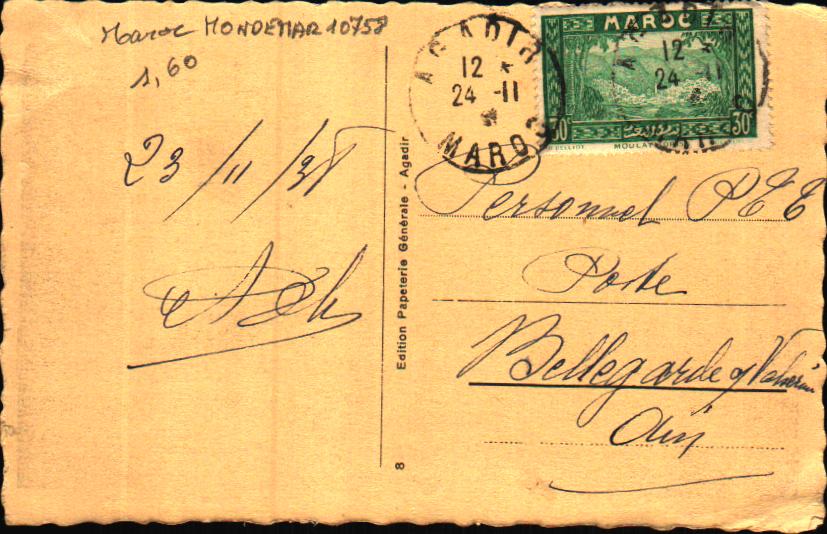 Maroc MONDEMAR 10758
1,60
AGADIR
12
24 -11
MAROC
MAROC
12
24 -11
30c 30c
MOULAY
23/11/38
Personnel PEE
Poste
Bellegarde s/Valserine
Ain
Edition Papeterie Générale - Agadir
8